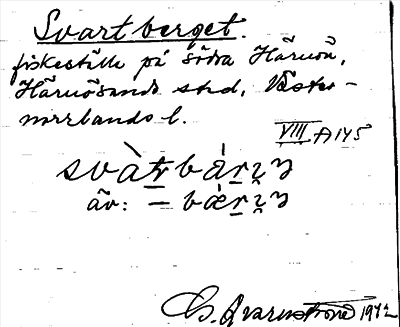 Svartberget.
fiskeställe på södra Härnön,
Härnösands stad, Väster-
norrlands l.
VIII A 145
svàt̠r bár̠ı̨ʒ
äv: — bǽr̠ı̨ʒ
1972